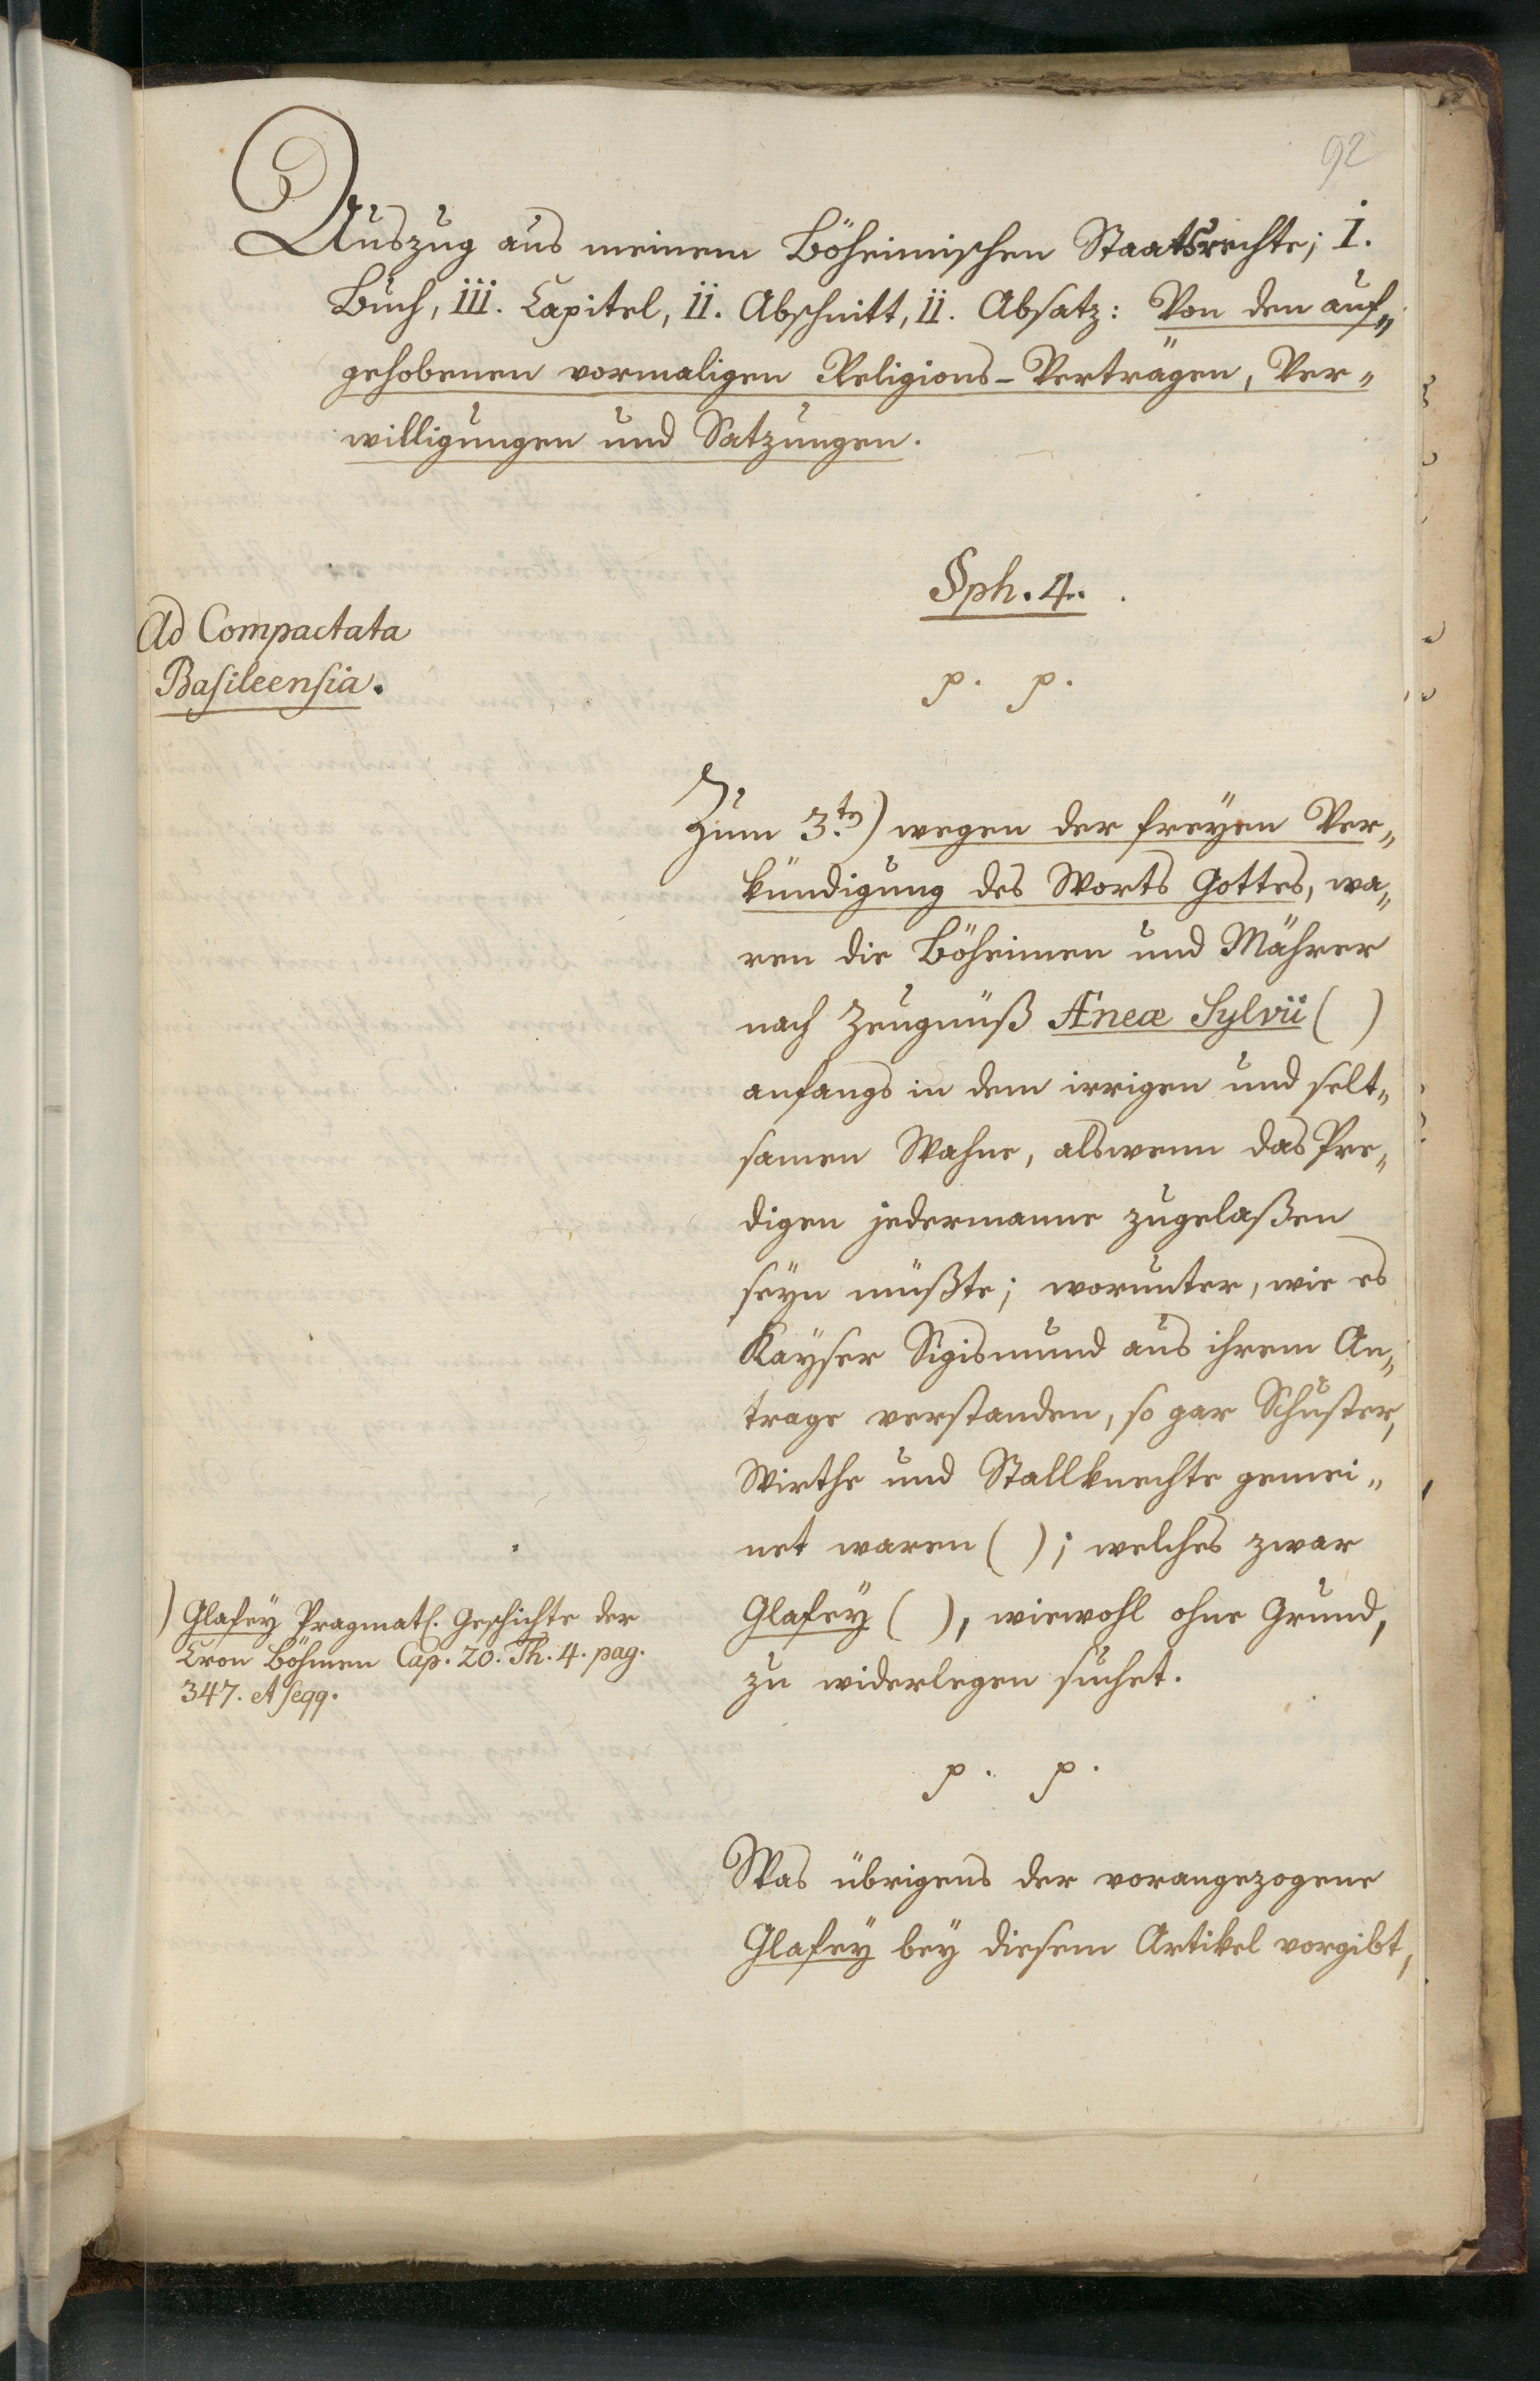 92
Auszug aus meinem Böheimischen Staatsrechte; I.
Buch, III. Capitel, II. Abschnitt, II. Absatz: Von den auf„
gehobenen vormaligen Religions-Verträgen, Ver„
willigungen und Satzungen.
Sph. 4.
Ad Compactata
Basileensia.
p. p.
Zum 3.ten) wegen der freÿen Ver„
kündigung des Worts Gottes, wa„
ren die Böheimen und Mährer
nach Zeugnüß Æneæ Sylvii ( )
anfangs in dem irrigen und selt„
samen Wahne, alswenn das Pre„
digen jedermanne zugelaßen
seÿn müßte; worunter, wie es
Kaÿser Sigismund aus ihrem An„
trage verstanden, so gar Schuster,
Wirthe und Stallknechte gemei„
net waren ( ); welches zwar
Glafeÿ ( ), wiewohl ohne Grund,
zu widerlegen suchet.
) Glafeÿ Pragmatl. Geschichte der
Cron Böhmen Cap. 20. Th. 4. pag.
347. et seqq.
p. p.
Was übrigens der vorangezogene
Glafeÿ beÿ diesem Artikel vorgibt,